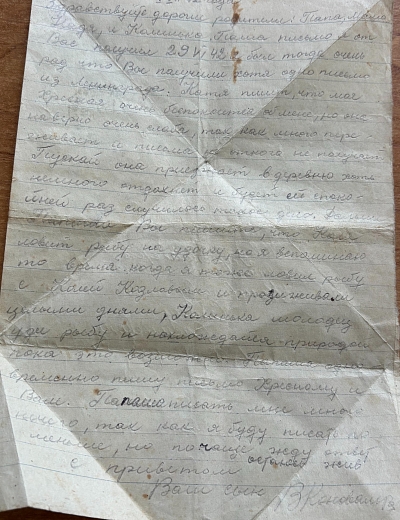 Здравствуйте дорогие родители! Папа,
и Колинька. Письмо я от
Вас получил 29 VI 42 г. был тогда очень
рад что Вы получили хотя одно письмо
из Ленинграда. Катя пишет, что моя
Кресная очень беспокоится обо мне, но она
наверно очень слаба, так как много пере-
живает и письма от меня не получает.
Пускай она приезжает в деревню хотя
немного отдохнет и будет ей спокой-
ней раз случилось такое дело.
Вы пишете, что Коля
ловит рыбу на удочку, но я вспоминаю
то время когда я тоже ловил рыбу
с Козловым и просиживали
целыми днями, Колинька молодец
уди рыбу и наслаждайся природой
пока это возможно. Папаша одно
временно пишу письмо Кресному и
Васе. Папаша писать мне много
нечего, так как я буду писать по
меньше, но по чаще жду ответ
с приветом остаюсь жив
Ваш сын В Коновалов